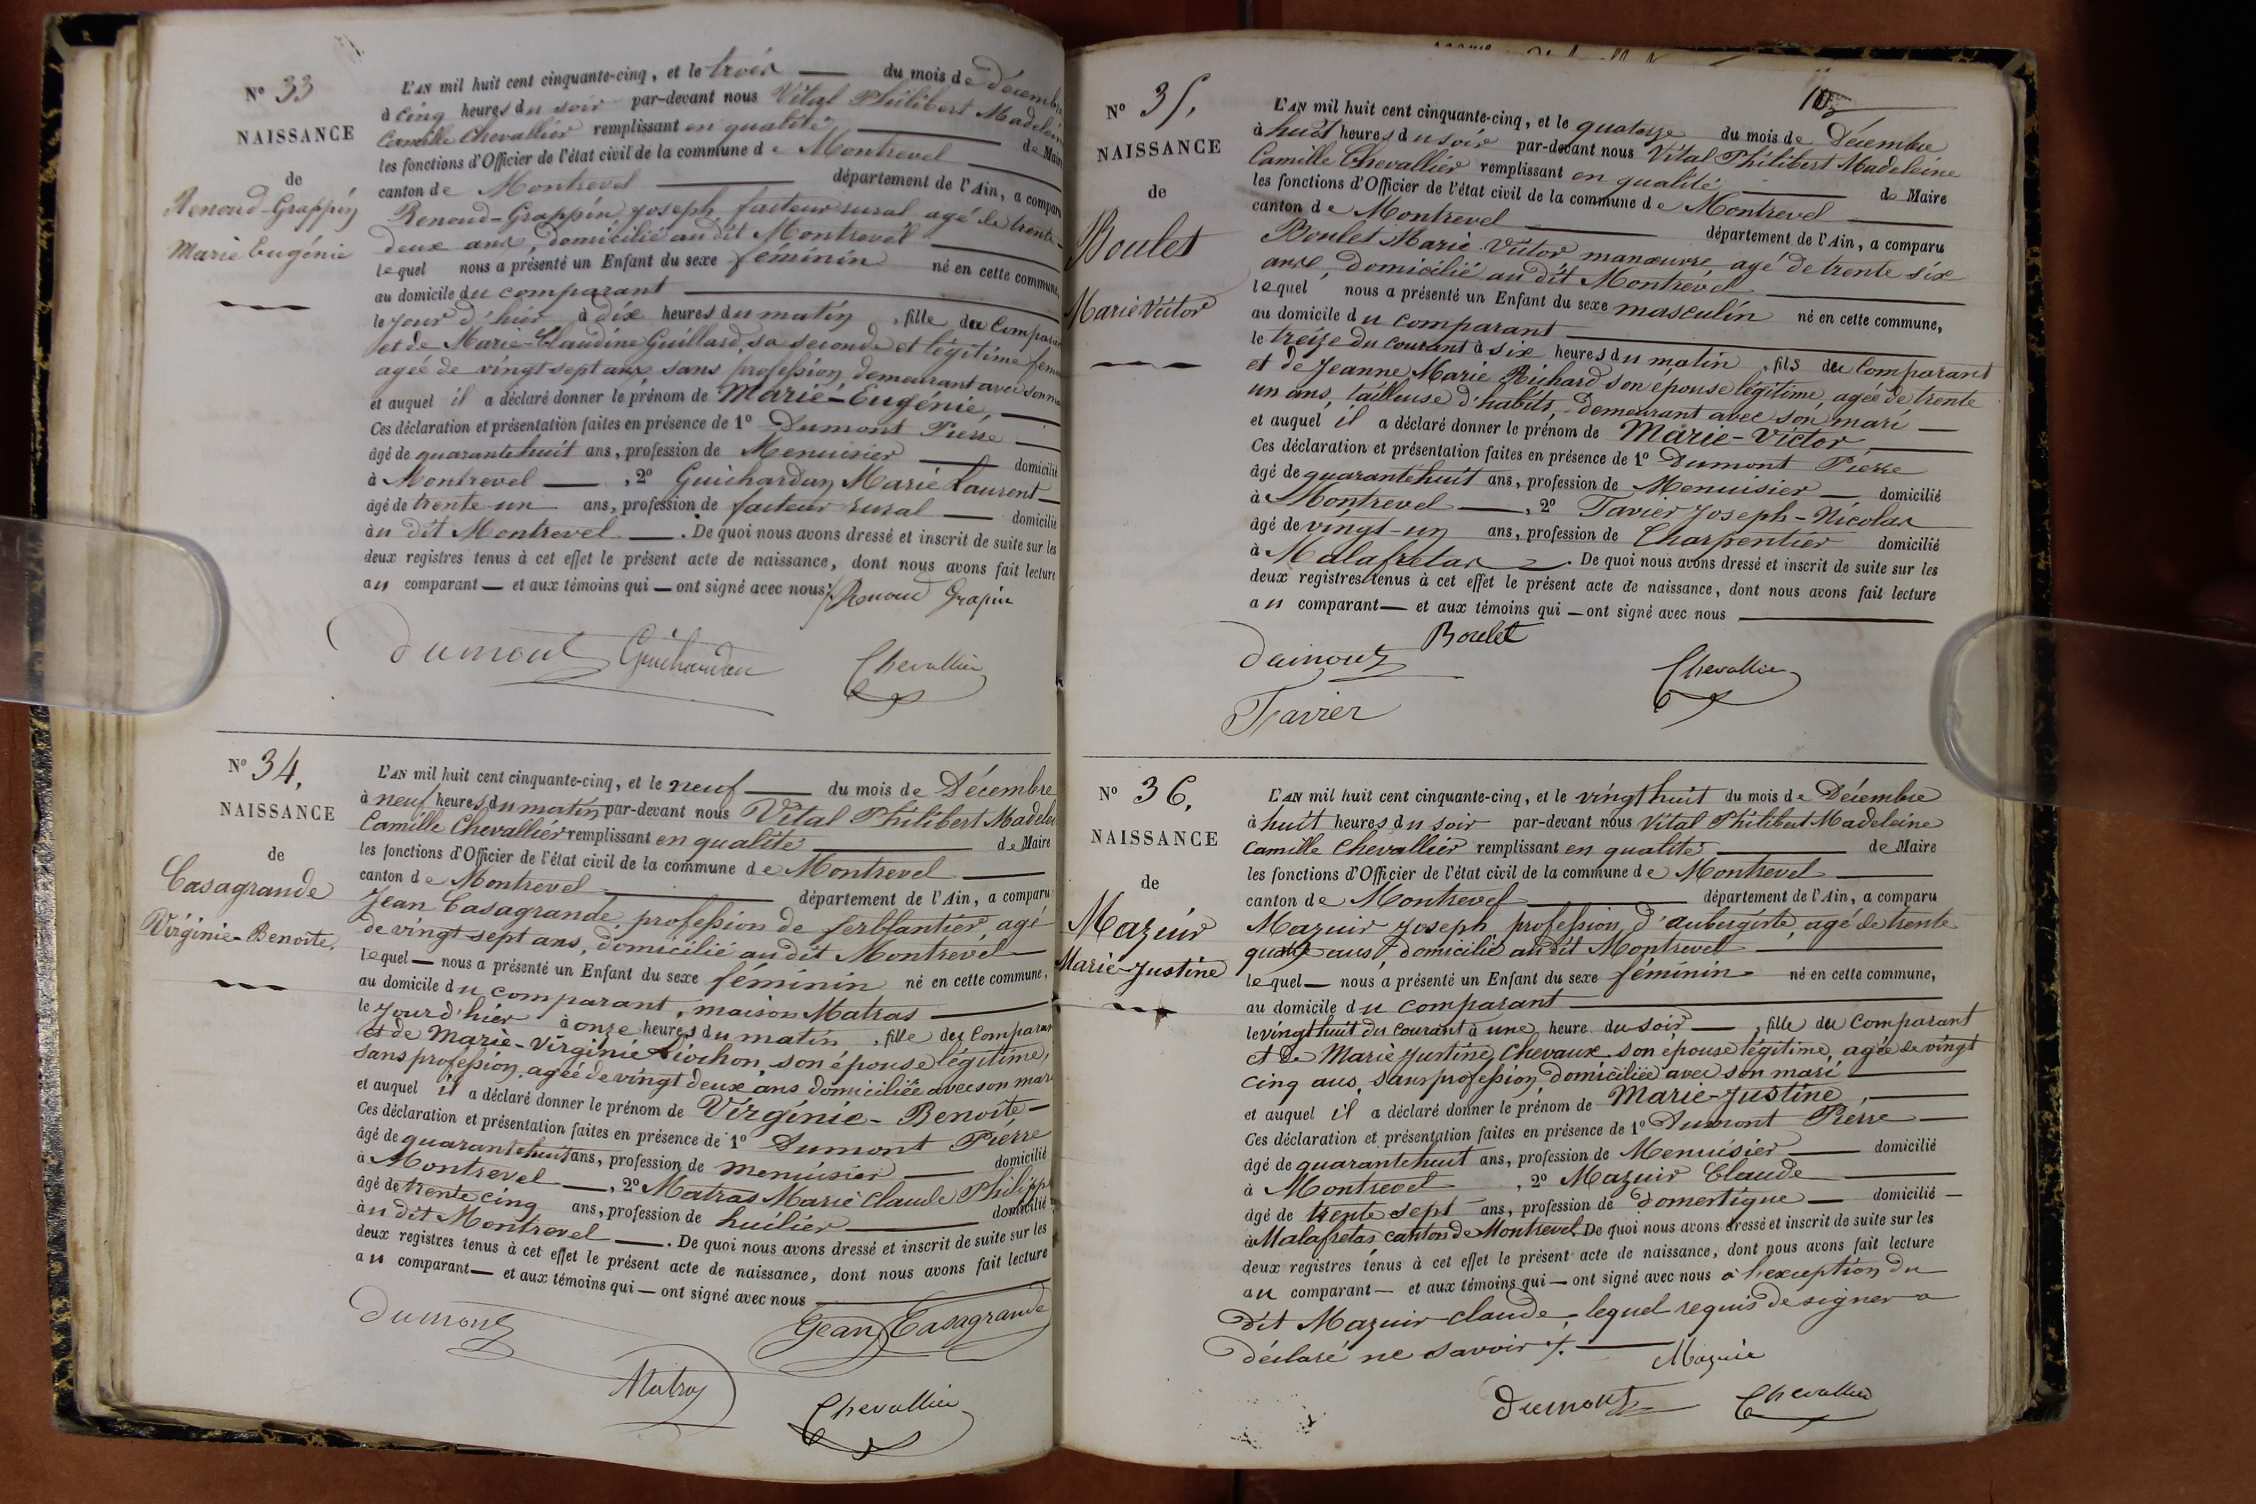 N° 33
NAISSANCE
de
Renoud-Grappin
Marie Eugénie
L'AN mil huit cent cinquante-cinq, et le trois — du mois de Décembre
à cinq heures du soir par-devant nous Vital Philibert Madelein
Camille Chevallier remplissant en qualité — de Maire
les fonctions d'Officier de l'état civil de la commune de Montrevel —
canton de Montrevel — département de l'Ain, a comparu
Renoud-Grappin Joseph facteur rural agé de trente
deux ans, domicilié au dit Montrevel —
lequel nous a présenté un Enfant du sexe féminin né en cette commune,
au domicile du comparant —
le jour d'hier à dix heures du matin, fille du Comparant
et de Marie-Claudine Guillard, sa seconde et légitime femme
agée de vingt sept ans sans profession demeurant avec son ma
et auquel il a déclaré donner le prénom de Marie-Eugénie, —
Ces déclaration et présentation faites en présence de 1° Dumont Pierre —
âgé de quarante huit ans, profession de Menuisier — domicilié
à Montrevel —, 2° Guichardan Marie Laurent —
âgé de trente un ans, profession de facteur rural — domicilié
àu dit Montrevel —. De quoi nous avons dressé et inscrit de suite sur les
deux registres tenus à cet effet le présent acte de naissance, dont nous avons fait lecture
au comparant — et aux témoins qui — ont signé avec nous Renoud Grapin
Dumont Guichardan Chevallier
N° 34.
NAISSANCE
de
Casagrande
Virginie-Benoite.
L'AN mil huit cent cinquante-cinq, et le neuf — du mois de Décembre
à neuf heures du matin par-devant nous Vital Philibert Madelei
Camille Chevallier remplissant en qualité — de Maire
les fonctions d'Officier de l'état civil de la commune de Montrevel —
canton de Montrevel — département de l'Ain, a comparu
Jean Casagrande, profession de ferblantier, agé
de vingt sept ans, domicilié au dit Montrevel —
lequel — nous a présenté un Enfant du sexe féminin né en cette commune,
au domicile du comparant, maison Matras —
le jour d'hier à onze heures du matin, fille du Comparant
et de Marie-Virginie Liochon, son épouse légitime,
sans profession, agée de vingt deux ans domiciliée avec son mari
et auquel il a déclaré donner le prénom de Virginie-Benoite —
Ces déclaration et présentation faites en présence de 1° Dumont Pierre
âgé de quarante huit ans, profession de menuisier — domicilié
à Montrevel —, 2° Matras Marie Claude Philippe
âgé de trente cinq ans, profession de huilier — domicilié
àu dit Montrevel —. De quoi nous avons dressé et inscrit de suite sur les
deux registres tenus à cet effet le présent acte de naissance, dont nous avons fait lecture
au comparant — et aux témoins qui — ont signé avec nous —
Dumont Gean Casagrande
Matras Chevallier
N° 35.
NAISSANCE
de
Boulet
Marie Victor
L'AN mil huit cent cinquante-cinq, et le quatorze du mois de Décembre
à huit heures du soir par-devant nous Vital Philibert Madeleine
Camille Chevallier remplissant en qualité — de Maire
les fonctions d'Officier de l'état civil de la commune de Montrevel —
canton de Montrevel — département de l'Ain, a comparu
Boulet Marie Victor manœuvre agé de trente six
ans, domicilié au dit Montrevel —
lequel nous a présenté un Enfant du sexe masculin né en cette commune,
au domicile du comparant —
le treize du courant à six heures du matin, fils du Comparant
et de Jeanne Marie Richard son épouse légitime, agée de trente
un ans, tailleuse d'habits, demeurant avec son mari —
et auquel il a déclaré donner le prénom de Marie-Victor, —
Ces déclaration et présentation faites en présence de 1° Dumont Pierre
âgé de quarante huit ans, profession de Menuisier — domicilié
à Montrevel —, 2° Tavier Joseph-Nicolas
âgé de vingt-un ans, profession de Charpentier domicilié
à Malafretas —. De quoi nous avons dressé et inscrit de suite sur les
deux registres tenus à cet effet le présent acte de naissance, dont nous avons fait lecture
au comparant — et aux témoins qui — ont signé avec nous —
Boulet
Dumont Chevallier
Tavier
N° 36.
NAISSANCE
de
Mazuir
Marie-Justine
L'AN mil huit cent cinquante-cinq, et le vingt huit du mois de Décembre
à huit heures du soir par-devant nous Vital Philibert Madeleine
Camille Chevallier remplissant en qualité — de Maire
les fonctions d'Officier de l'état civil de la commune de Montrevel —
canton de Montrevel — département de l'Ain, a comparu
Mazuir Joseph profession d'aubergiste, agé de trente
quatre ans, domicilié au dit Montrevel —
lequel — nous a présenté un Enfant du sexe féminin né en cette commune,
au domicile du comparant —
le vingt huit du courant à une heure du soir —, fille du Comparant
et de Marie Justine Chevaux son épouse légitime, agée de vingt
cinq ans, sans profession, domiciliée avec son mari —
et auquel il a déclaré donner le prénom de Marie-Justine, —
Ces déclaration et présentation faites en présence de 1° Dumont Pierre —
âgé de quarante huit ans, profession de Menuisier — domicilié
à Montrevel, 2° Mazuir Claude —
âgé de trente sept ans, profession de domestique — domicilié —
à Malafretas canton de Montrevel. De quoi nous avons dressé et inscrit de suite sur les
deux registres tenus à cet effet le présent acte de naissance, dont nous avons fait lecture
au comparant — et aux témoins qui — ont signé avec nous à l'exception du
dit Mazuir Claude, lequel requis de signer a
déclaré ne savoir ./. — Mazuir
Dumont Chevallier